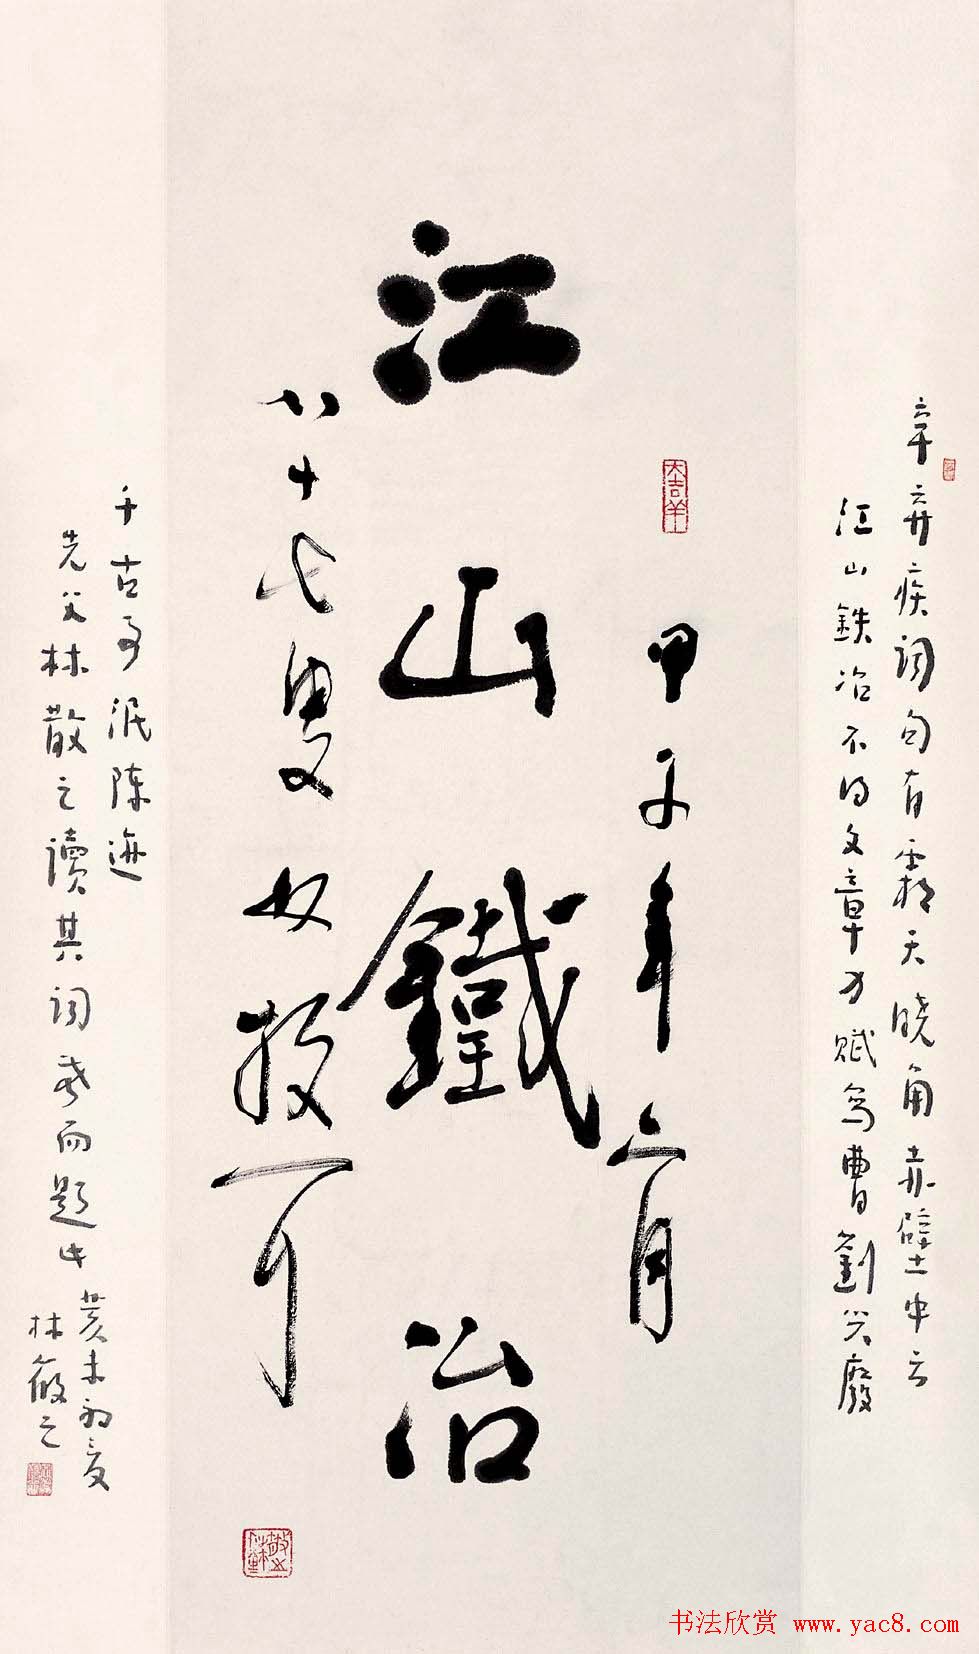 辛弃疾词句有霜天晓角赤壁中云
江山鉄冶不得文章力赋写曹劉兴廢
大吉羊
甲子年六月
江山鐵冶
八十七叟林散耳
千古事泯陈迹
先父林散之讀其词而題此
癸未初夏
林筱之
书法欣赏 www.yac8.com